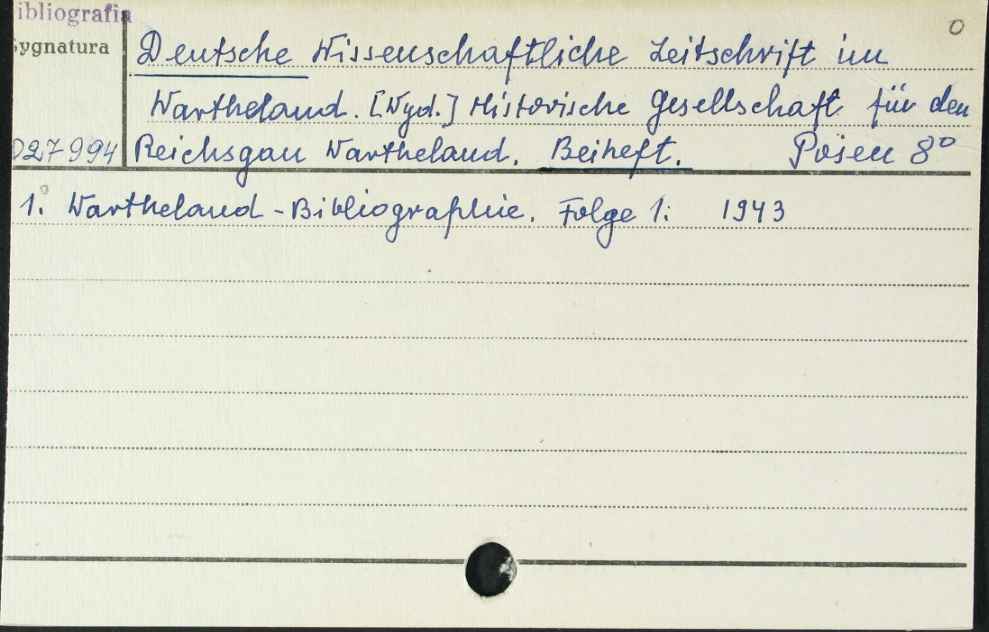 ibliografia
ygnatura
0
Deutsche Wissenschaftliche Zeitschrift im
Wartheland. [Wyd.] Historische Gesellschaft für den
027994 Reichsgau Wartheland. Beiheft. Posen 8°
1. Wartheland-Bibliographie. Folge 1: 1943